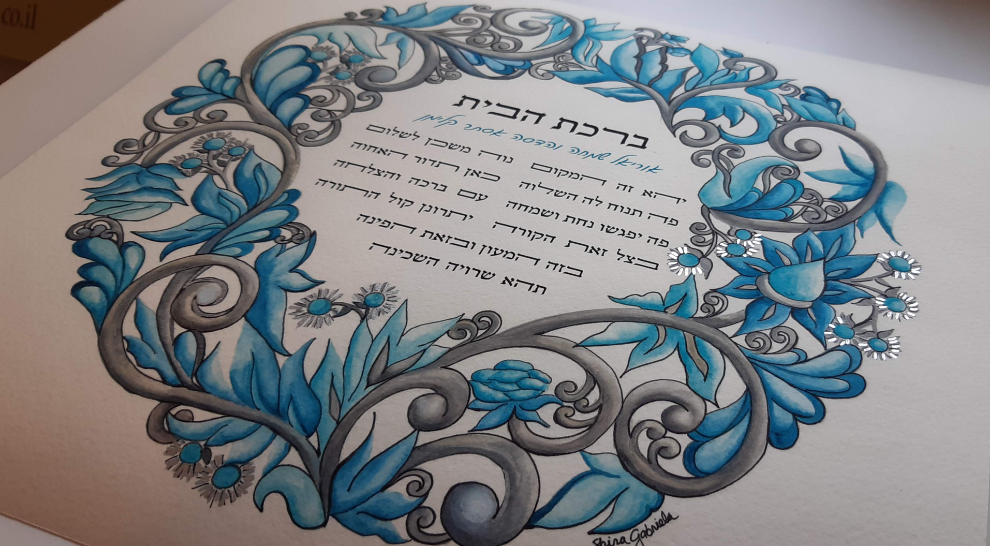 co.il
ברכת הבית
אוריאל שמחה והדסה אסתר
יהא זה המקום נוה משכן לשלום
פה תנוח לה השלוה כאן תדור האחוה
פה יפגשו נחת ושמחה עם ברכה והצלחה
בצל זאת הקורה יתרונן קול התורה
בזה המעון ובזאת הפינה
תהא שרויה השכינה
Shira Gabriela